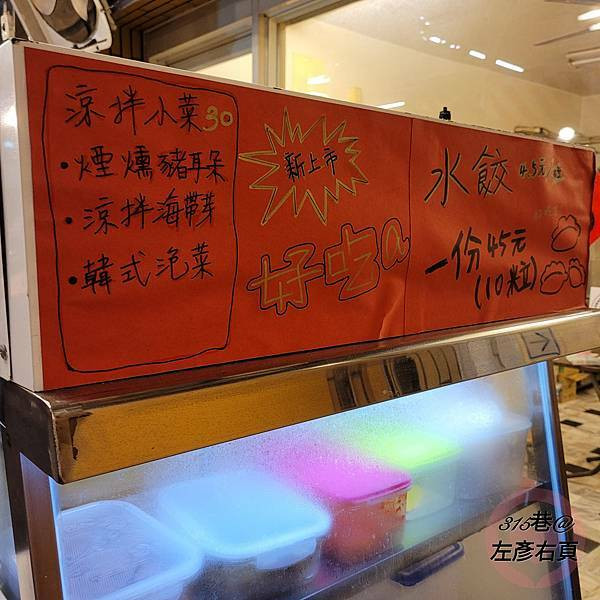 涼拌小菜30
•煙燻豬耳朵
•涼拌海帶芽
•韓式泡菜
新上市
好吃a
水餃 4.5元/粒
一份45元
(10粒)
315巷@
左彥右頁